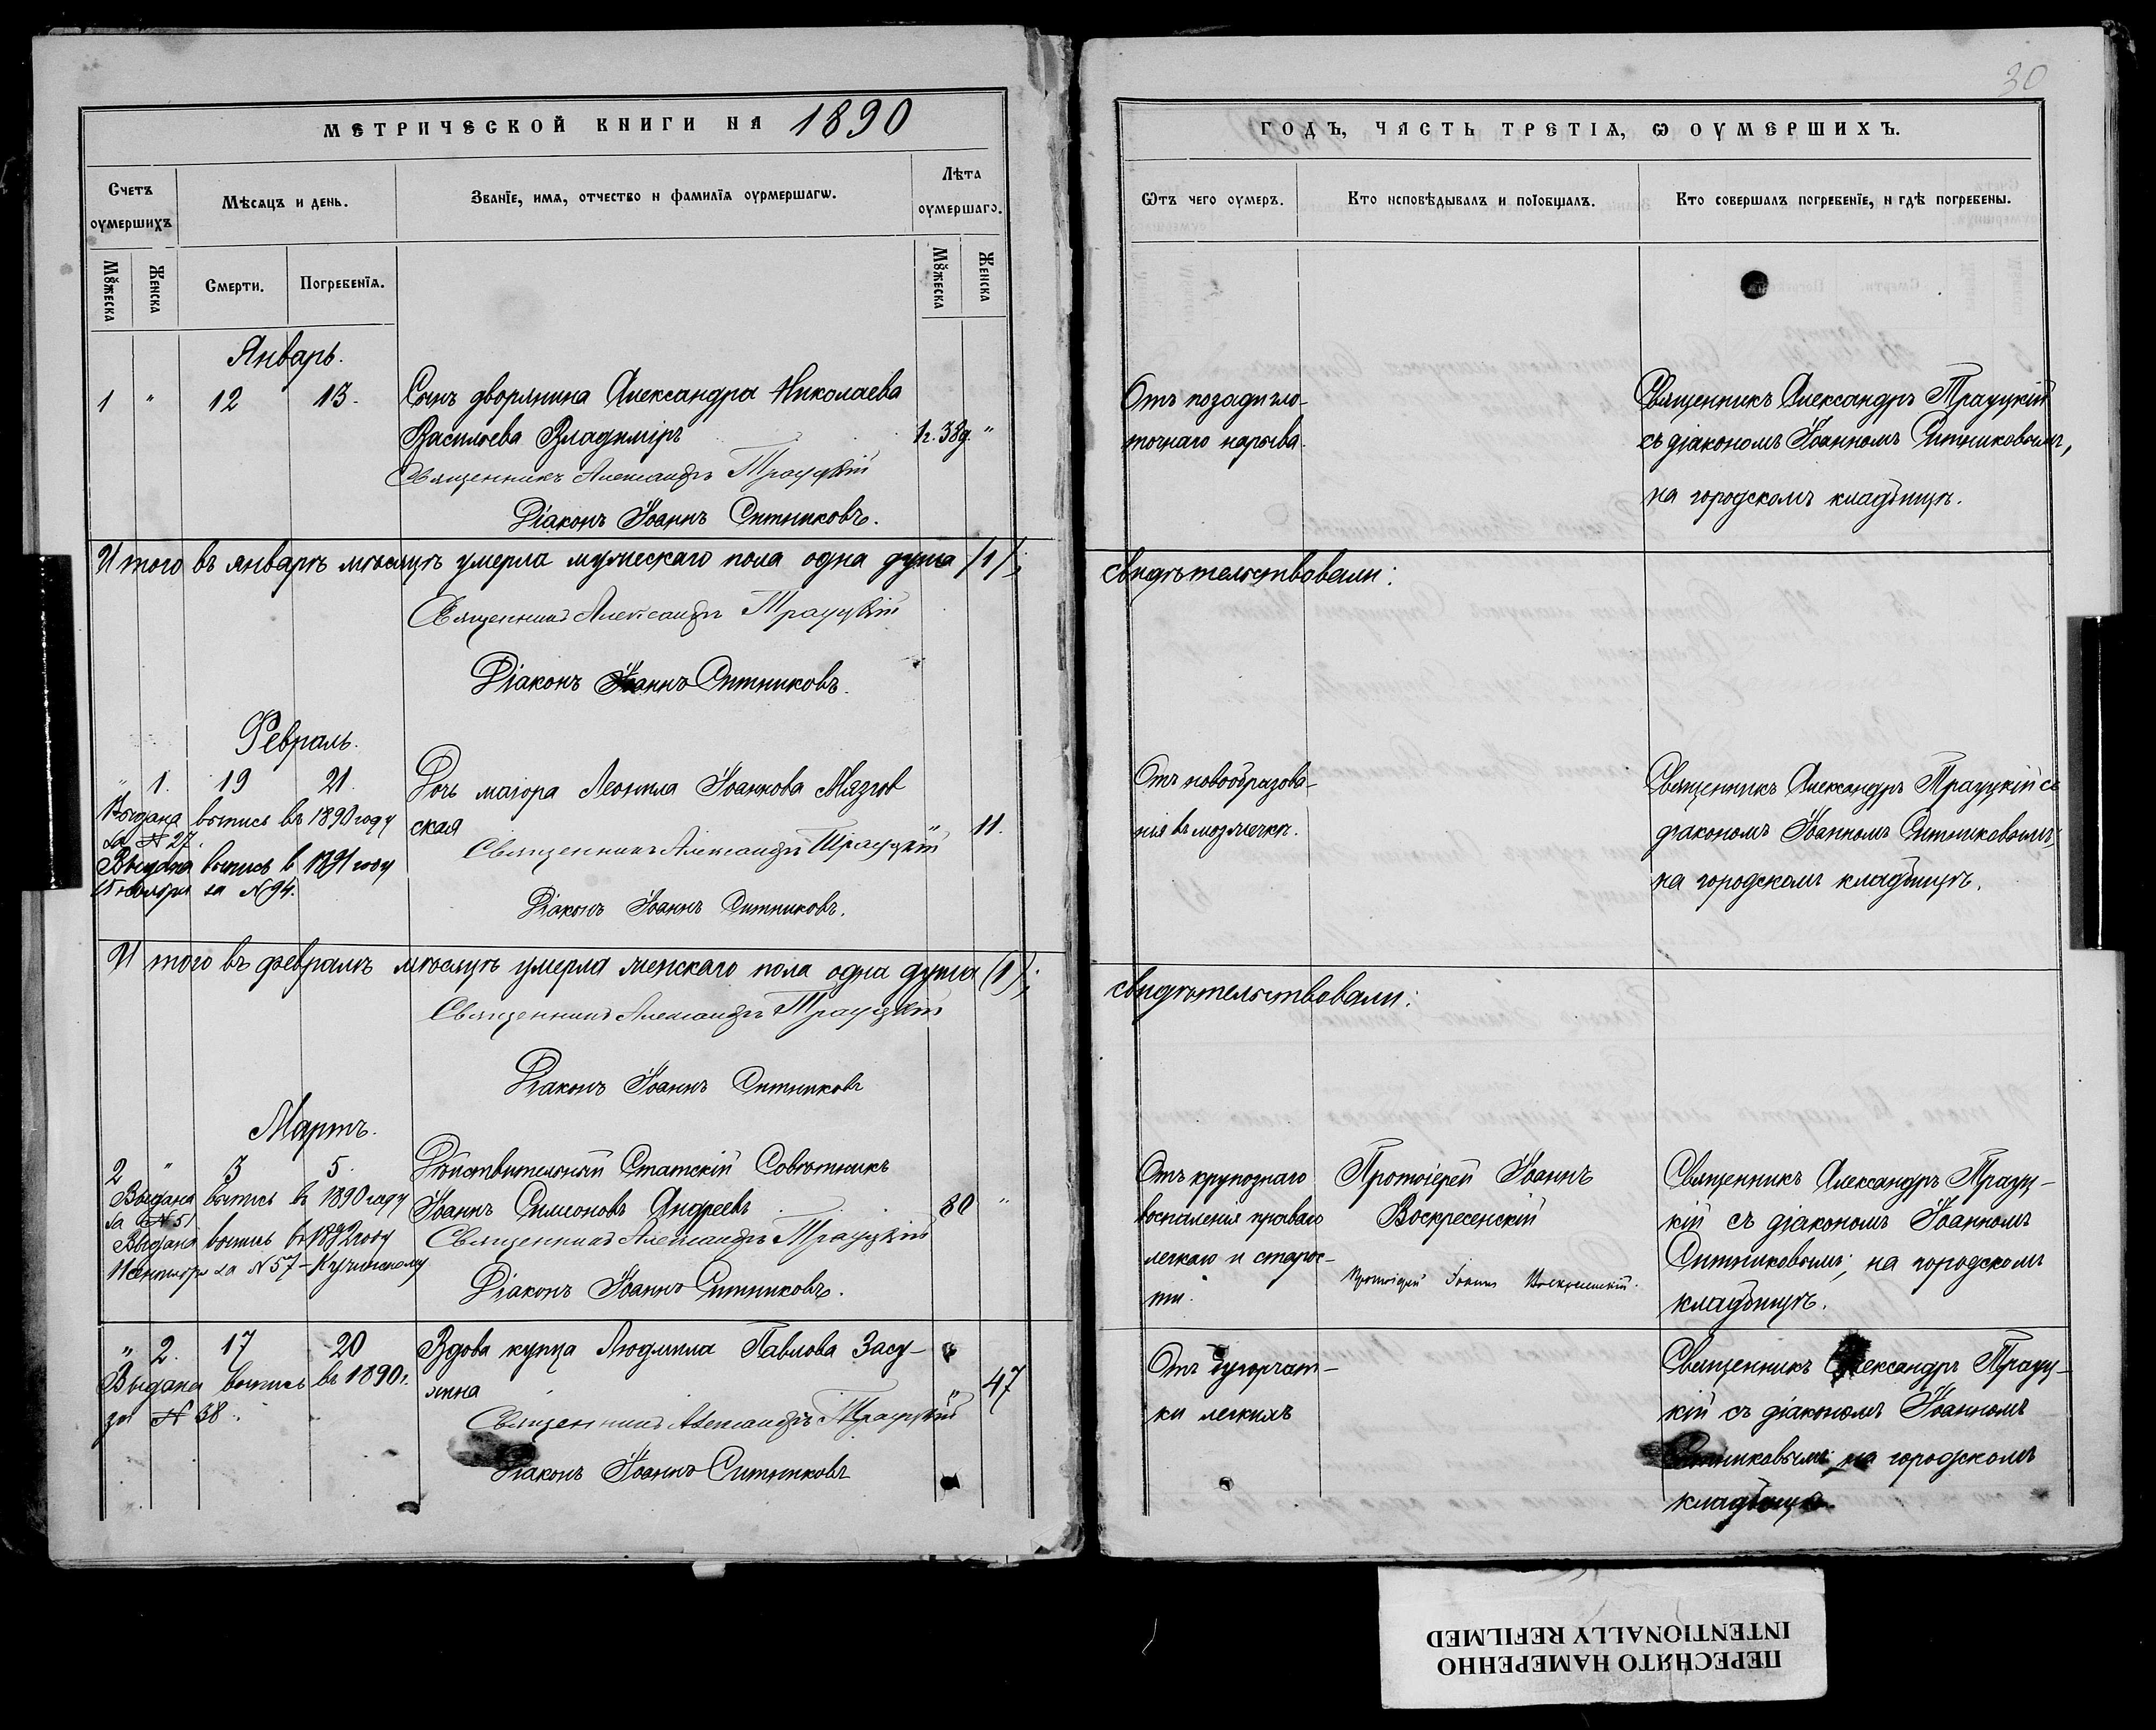 МЕТРИЧЕСКОЙ КНИГИ НА 1890
Счетъ оумершихъ
Мѣсяцъ и день.
Званїе, имѧ, отчество и фамилїѧ оурмершагѡ.
Лѣта оумершаго.
Мꙋжеска
Женска
Смерти.
Погребенїѧ.
Мꙋжеска
Женска
Январь.
1 " 12 13. Сынъ дворянина Александра Николаева
Васильева Владиміръ 1г. 38д. "
Священникъ Александръ Трауцкій
Діаконъ Іоаннъ Ситниковъ.
Итого въ январѣ мѣсяцѣ умерла мужескаго пола одна душа /1/;
Священникъ Александръ Трауцкій
Діаконъ Іоаннъ Ситниковъ.
Февраль.
" 1. 19 21. Дочь маіора Леонила Іоаннова Мязгов
ская " 11.
Выдана выпись въ 1890 году
за № 27.
Выдана выпись в 1891 году
15 ноября за № 94.
Священникъ Александръ Трауцкій
Діаконъ Іоаннъ Ситниковъ.
Итого въ февралѣ мѣсяцѣ умерла женскаго пола одна душа (1);
Священникъ Александръ Трауцкій
Діаконъ Іоаннъ Ситниковъ
Мартъ.
2 " 3 5. Дѣйствительный Статскій Совѣтникъ
Іоаннъ Симеоновъ Андреевъ 80 "
Выдана выпись въ 1890 году
за № 51
Выдана выпись въ 1892 году
11 сентября за № 57 - Кучинскому
Священникъ Александръ Трауцкій
Діаконъ Іоаннъ Ситниковъ.
" 2. 17 20 Вдова купца Людмила Павлова Засу-
хина " 47
Выдана выпись въ 1890 г.
за № 38.
Священникъ Александръ Трауцкій
Діаконъ Іоаннъ Ситниковъ
30
ГОДЪ, ЧАСТЬ ТРЕТІѦ, Ѡ ОУМЕРШИХЪ.
Ѿтъ чего оумеръ.
Кто исповѣдывалъ и поїобщалъ.
Кто совершалъ погребенїе, и гдѣ погребены.
Отъ позадигло-
точнаго нарыва.
Священникъ Александръ Трауцкій
съ діакономъ Іоанномъ Ситниковымъ,
на городскомъ кладбищѣ.
свидѣтельствовали:
Отъ новообразова-
нія въ мозжечкѣ.
Священникъ Александръ Трауцкій съ
діакономъ Іоанномъ Ситниковымъ,
на городскомъ кладбищѣ.
свидѣтельствовали:
Отъ крупознаго
воспаленія праваго
легкаго и старос-
ти.
Протоіерей Іоаннъ
Воскресенскій
Протоіерей Іоаннъ Воскресенскій.
Священникъ Александръ Трауц-
кій съ діакономъ Іоанномъ
Ситниковымъ; на городскомъ
кладбищѣ.
Отъ бугорчат-
ки легкихъ
Священникъ Александръ Трауц-
кій съ діакономъ Іоанномъ
Ситниковымъ; на городскомъ
кладбищѣ.
ПЕРЕСНЯТО НАМЕРЕННО
INTENTIONALLY REFILMED